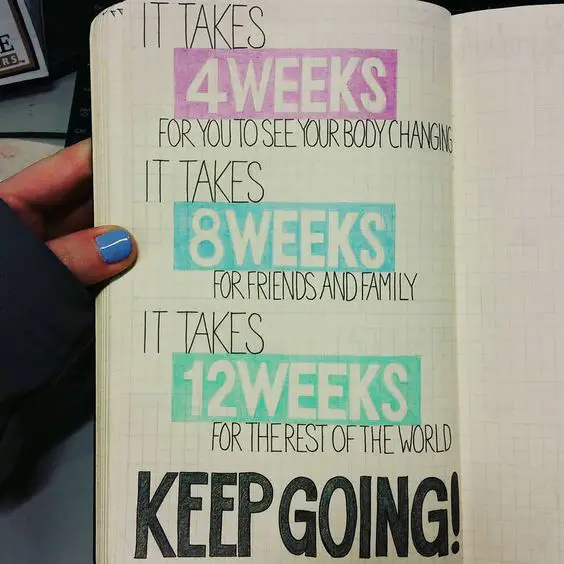 IT TAKES
4WEEKS
FOR YOU TO SEE YOUR BODY CHANGING
IT TAKES
8WEEKS
FOR FRIENDS AND FAMILY
IT TAKES
12WEEKS
FOR THE REST OF THE WORLD
KEEP GOING!